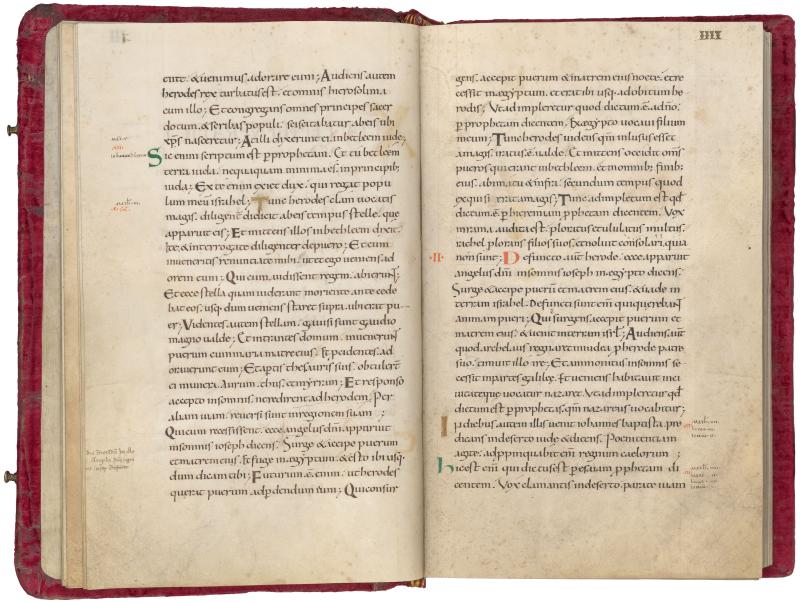 ente. & uenimus adorare eum; Audiens autem
herodes rex turbatus est. et omnis hierosolima
cum illo; Et congregans omnes principes sacer
dotum. & scribas populi. sciscitabatur ab eis ubi
xps nasceretur; At illi dixerunt ei. in bethleem iude;
Sic enim scriptum est p prophetam. Et tu bethleem
terra iuda. nequaquam minima es in principib;
iuda; Ex te enim exiet dux. qui regat popu
lum meū israhel; Tunc herodes clam uocatis
magis. diligent didicit ab eis tempus stelle. que
apparuit eis; Et mittens illos in bethleem dixit.
Ite. & interrogate diligenter de puero; Et cum
inueneritis renuntiate mihi. ut et ego ueniens ad
orem eum; Qui cum audissent regem. abierunt;
Et ecce stella quam uiderant in oriente. ante cede
bat eos. usq; dum ueniens staret supra. ubi erat pu
er; Videntes autem stellam. gauisi sunt gaudio
magno ualde; Et intrantes domum. inuenerunt
puerum cum maria matre eius. Et pcidentes. ad
orauerunt eum; Et aptis thesauris suis. obtulerūt
ei munera. Aurum. thus. et myrram; Et responso
accepto in somnis. ne redirent ad herodem. Per
aliam uiam. reuersi sunt in regionem suam;
Qui cum recessissent. ecce angelus dnī apparuit
in somnis ioseph dicens. Surge & accipe puerum
et matrem eius. Et fuge in aegyptum. & esto ibi usq;
dum dicam tibi; Futurum ē enim. ut herodes
querat puerum ad pdendum eum; Qui consur
IIII
gens. accepit puerum & matrem eius nocte. et re
cessit in aegyptum. et erat ibi usq; ad obitum he
rodis; Vt adimpleretur quod dictum ē a dnō.
p prophetam dicentem. Ex aegypto uocaui filium
meum; Tunc herodes uidens qm̄ inlusus esset
a magis. iratus ē ualde. Et mittens occidit om̄s
pueros qui erant in bethleem. et in omnib; finib;
eius. a bimatu & infra. secundum tempus quod
exquisierat a magis; Tunc adimpletum est qd̄
dictum ē. p hieremiam pphetam dicentem. Vox
in rama audita est. ploratus et ululatus multus.
rachel plorans filios suos. et noluit consolari. quia
non sunt;
·II·
Defuncto aut̄ herode. ecce apparuit
angelus dnī in somnis ioseph in aegypto dicens.
Surge & accipe puerū et matrem eius. & uade in
terram israhel. Defuncti sunt eni qui querebant
animam pueri; Qui surgens. accepit puerum et
matrem eius. & uenit in terram isrl; Audiens aut̄
quod archelaus regnaret in iudea p herode patre
suo. timuit illo ire; Et ammonitus in somnis. se
cessit in partes galilee. Et ueniens habitauit in ci
uitate que uocatur nazareth. Vt adimpleretur qd̄
dictum est p prophetas. qm̄ nazareus uocabitur;
In diebus autem illis uenit iohannes baptista. pre
dicans in deserto iudee & dicens. Poenitentiam
agite. adppinquabit enim regnum caelorum;
hic est enim qui dictus est p esaiam pphetam di
centem. Vox clamantis in deserto. parate uiam